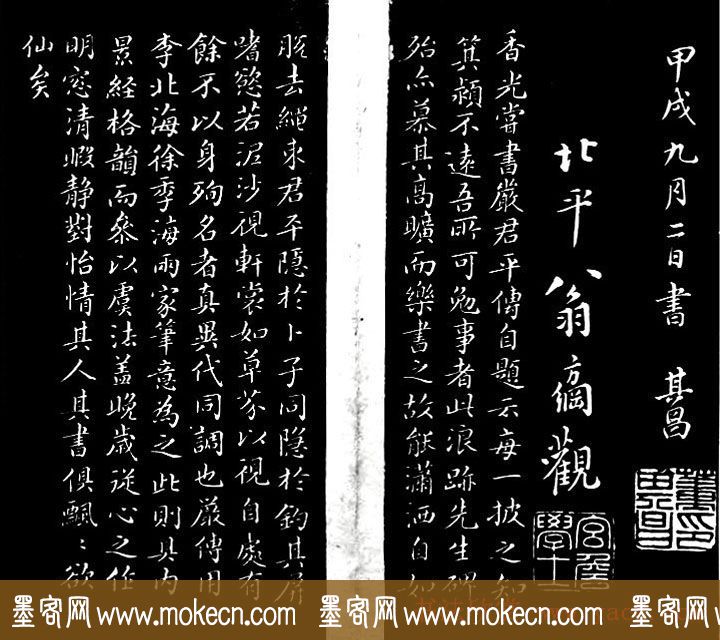 甲戌九月二日書 其昌
北平翁方綱觀
香光嘗書嚴君平傳自題云每一披之知
箕潁不遠吾所可勉事者此浪跡先生
殆亦慕其高曠而樂書之故能瀟洒自如
脫去繩束君平隱於卜子同隱於釣其屏
嗜慾若泥沙視軒裳如草芥以視自處有
餘不以身殉名者真異代同調也嚴傳用
李北海徐季海兩家筆意為之此則具內
景經格韻而叅以虞法蓋晚歲從心之作
明窓清暇靜對怡情其人其書俱飄〻欲
仙矣
董其昌印
墨客网 www.mokecn.com 墨客网 www.mokecn.com